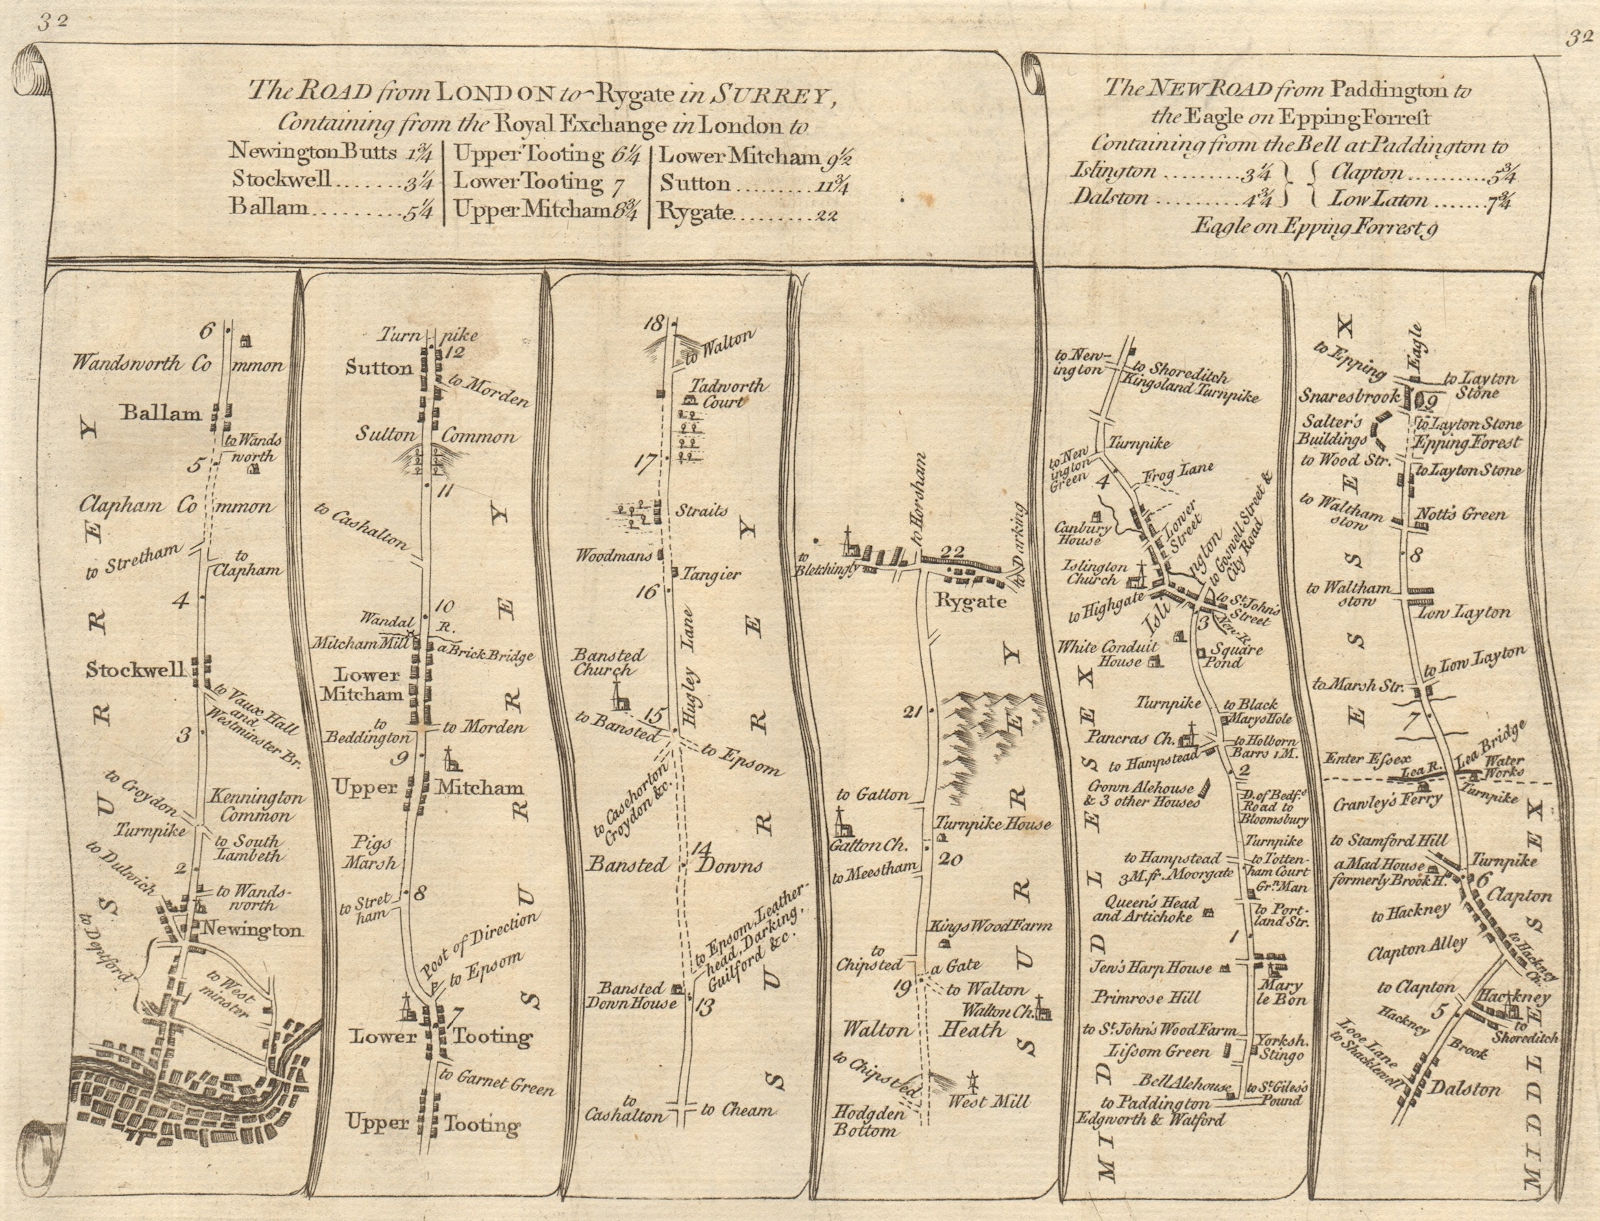 32
32
The ROAD from LONDON to Rygate in SURREY,
Containing from the Royal Exchange in London to
Newington Butts 1¾
Stockwell....... 3¼
Ballam.......... 5¼
Upper Tooting 6¼
Lower Tooting 7
Upper Mitcham 8¾
Lower Mitcham 9½
Sutton ......... 11¾
Rygate.......... 22
The NEW ROAD from Paddington to
the Eagle on Epping Forrest
Containing from the Bell at Paddington to
Islington ......... 3¼
Dalston .......... 4¾
Clapton .......... 5¾
Low Laton ....... 7¾
Eagle on Epping Forrest 9
6
Wandsworth Common
Ballam
to Wands
worth
5
Clapham Common
to Stretham
to
Clapham
4
Stockwell
to Vaux Hall
and
Westminster Br.
3
to Croydon
Kennington
Common
Turnpike
to South
Lambeth
to Dulwich
2
to Wands-
worth
Newington
to Deptford
to West
minster
SURREY
Turnpike
12
Sutton
to Morden
Sutton Common
11
to Cashalton
10
Wandal R.
Mitcham Mill
a Brick Bridge
Lower
Mitcham
to
Beddington
to Morden
9
Upper Mitcham
Pigs
Marsh
8
to Stret
ham
Post of Direction
P
to Epsom
7
Lower Tooting
to Garnet Green
Upper Tooting
SURREY
18
to Walton
Tadworth
Court
17
Straits
Woodmans
Tangier
16
Hugley Lane
Bansted
Church
15
to Bansted
to Epsom
to Casehorton
Croydon &c.
14
Bansted Downs
to Epsom, Leather-
head, Darking,
Guilford &c.
Bansted
Down House
13
to
Cashalton
to Cheam
SURREY
to Horsham
to
Bletchingly
22
to Darking
Rygate
21
to Gatton
Turnpike House
Gatton Ch.
20
to Meestham
Kings Wood Farm
to
Chipsted
a Gate
19
to Walton
Walton Ch.
Walton Heath
to Chipsted
West Mill
Hodgden
Bottom
SURREY
to New-
ington
to Shoreditch
Kingsland Turnpike
Turnpike
to New
ington
Green
4
Frog Lane
Canbury
House
Lower
Street
to Goswell Street &
City Road
Islington
Church
to Highgate
Islington
to St. John's
Street
3
New R.
White Conduit
House
Square
Pond
Turnpike
to Black
Marys Hole
Pancras Ch.
to Holborn
Barrs 1 M.
to Hampstead
2
Crown Alehouse
& 3 other Houses
D. of Bedf.
Road to
Bloomsbury
Turnpike
to Hampstead
3 M. fr. Moorgate
to Totten-
ham Court
Grn. Man
Queen's Head
and Artichoke
to Port-
land Str.
1
Jen's Harp House
Mary
le Bon
Primrose Hill
to St. John's Wood Farm
Lissom Green
Yorksh.
Stingo
Bell Alehouse
to St. Giles's
Pound
to Paddington
Edgworth & Watford
MIDDLESEX
to Epping
Eagle
to Layton
Stone
Snaresbrook
9
Salter's
Buildings
to Layton Stone
Epping Forest
to Wood Str.
to Layton Stone
to Waltham
stow
Nott's Green
8
to Waltham
stow
Low Layton
to Low Layton
to Marsh Str.
7
Lea Bridge
Enter Essex
Lea R.
Water
Works
Crawley's Ferry
Turnpike
to Stamford Hill
Turnpike
a Mad House
formerly Brook H.
6
Clapton
to Hackney
Clapton Alley
to Hackney
Ch.
to Clapton
5
Hackney
to
Shoreditch
Hackney Brook
Looe Lane
to Shacklewell
Dalston
ESSEX
MIDDLESEX